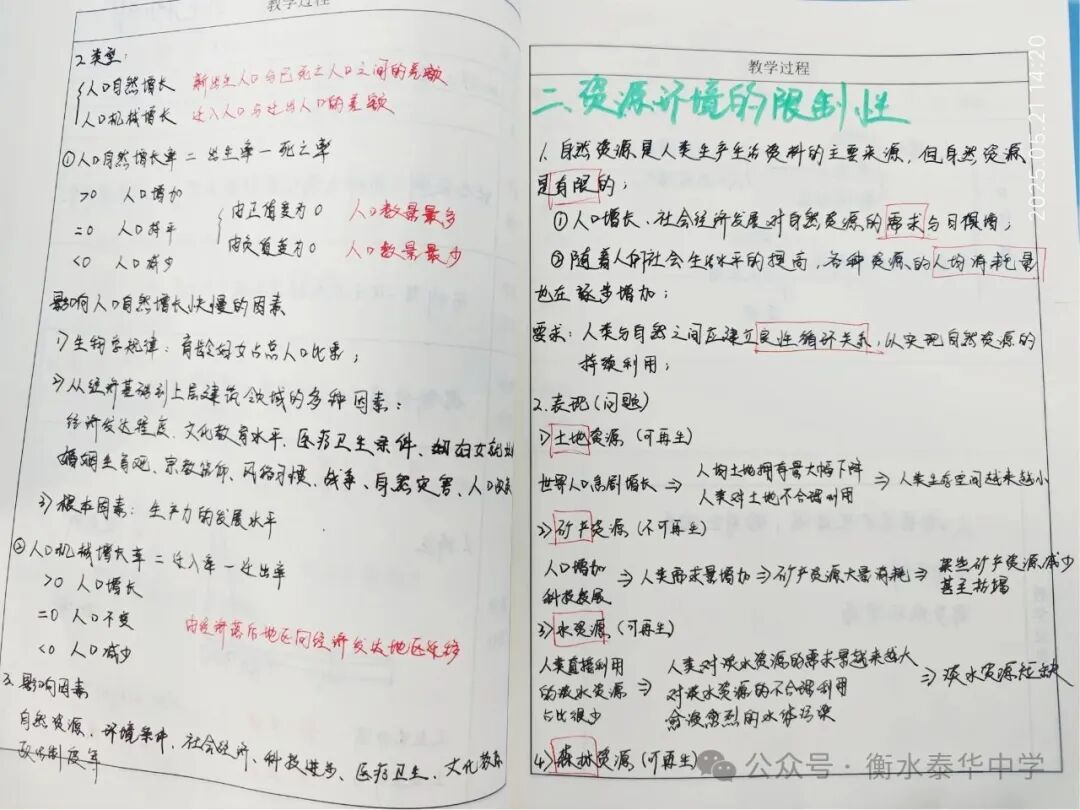 教学过程
2.类型:
人口自然增长 新出生人口与已死亡人口之间的差额
人口机械增长 迁入人口与迁出人口的差额
①人口自然增长率=出生率-死亡率
>0 人口增加
=0 人口持平
<0 人口减少
由正值变为0 人口数量最多
由负值变为0 人口数量最少
影响人口自然增长快慢的因素
1)生物学规律:育龄妇女占总人口比重;
2)从经济基础到上层建筑领域的多种因素:
经济发达程度、文化教育水平、医疗卫生条件、妇女就业
婚姻生育观、宗教信仰、风俗习惯、战争、自然灾害、人口政策
3)根本因素:生产力的发展水平
②人口机械增长率=迁入率-迁出率
>0 人口增长
=0 人口不变
<0 人口减少
由经济落后地区向经济发达地区迁移
3.影响因素
自然资源、环境条件、社会经济、科技进步、医疗卫生、文化教育
政治制度等
教学过程
二、资源环境的限制性
1.自然资源是人类生产生活资料的主要来源,但自然资源
是有限的;
①人口增长、社会经济发展对自然资源的需求与日俱增;
②随着人们社会生活水平的提高,各种资源的人均消耗量
也在逐步增加;
要求:人类与自然之间应建立良性循环关系,以实现自然资源的
持续利用;
2.表现(问题)
1)土地资源(可再生)
世界人口急剧增长⇒人均土地拥有量大幅下降 人类对土地不合理利用⇒人类生存空间越来越小
2)矿产资源(不可再生)
人口增加 科技发展⇒人类需求量增加⇒矿产资源大量消耗⇒某些矿产资源减少 甚至枯竭
3)水资源(可再生)
人类直接利用 的淡水资源 占比很少⇒人类对淡水资源的需求量越来越大 对淡水资源的不合理利用 愈演愈烈的水体污染⇒淡水资源短缺
4)森林资源(可再生)
2025.05.21 14:20
公众号·衡水泰华中学